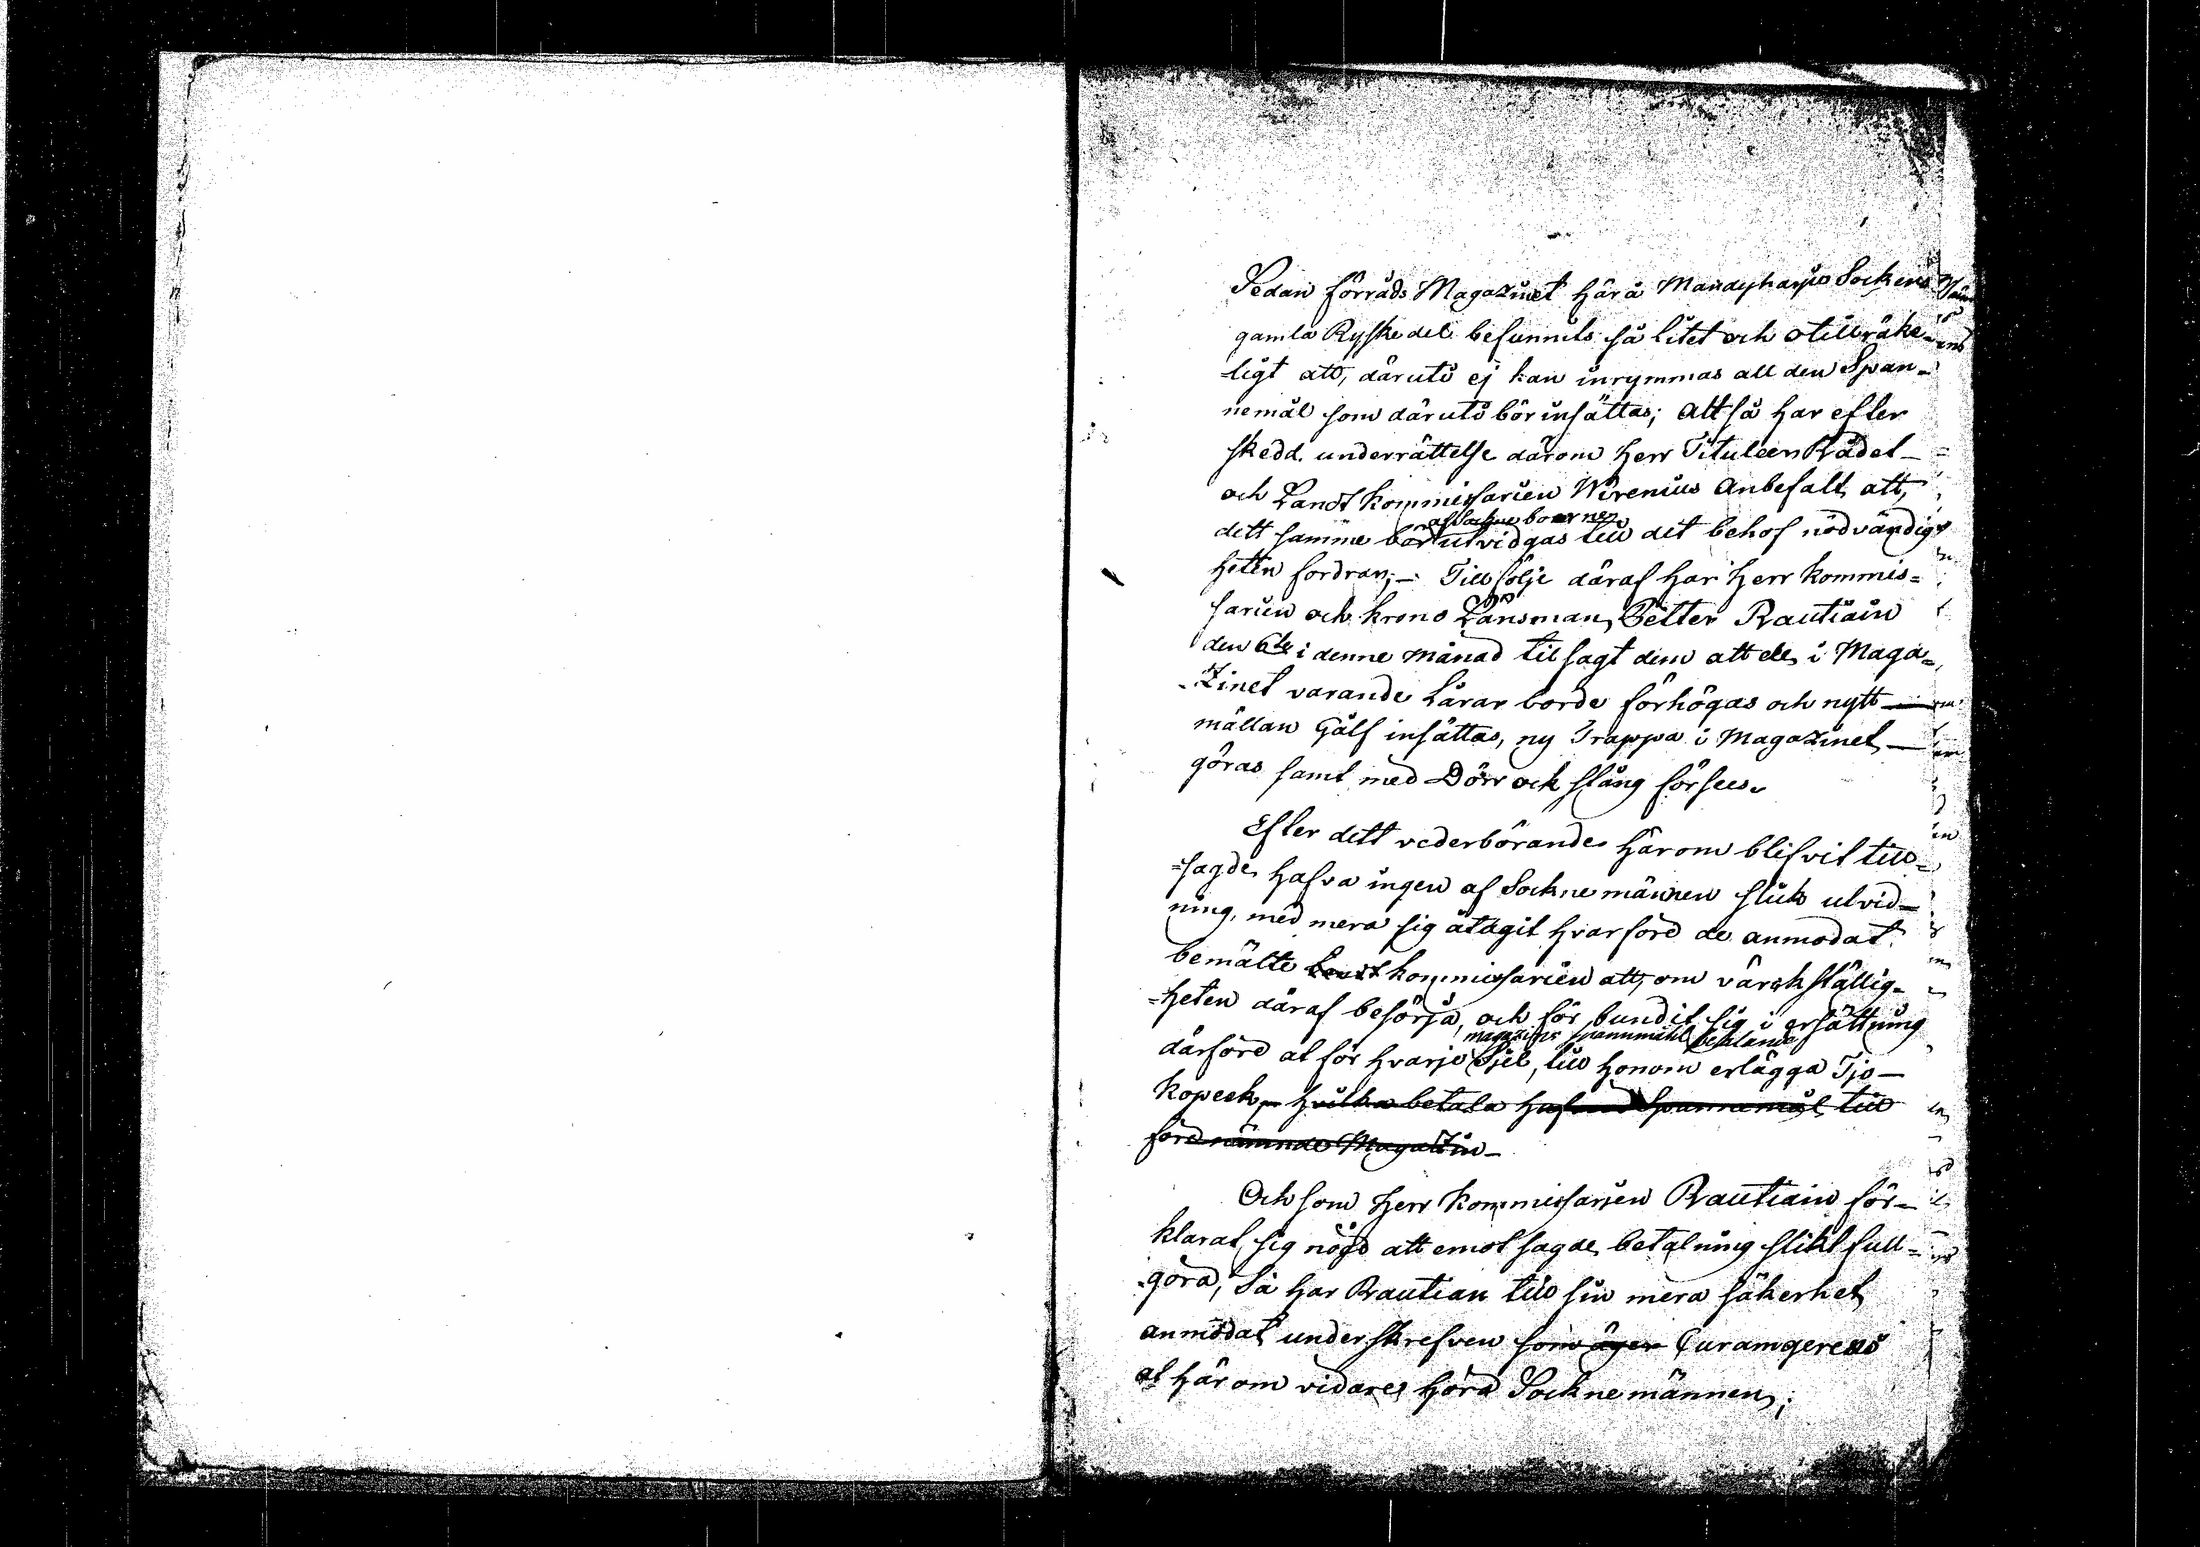 Sedan förråds Magazinet här å Mändyharju Sockens
gamla Ryske del befunnits så litet och otillräke-
ligt att, däruti ej kan inrymmas all den Span-
nemål som däruti bör insättas; Altså har efter
skedd underrättelse därom Herr Tituleer Rådet
och Landt kommissarien Wirenius Anbefalt att,
af Sockne boerne
dett samme bör utvidgas till det behof nödvändig
heten fordrar; – Till följe däraf har Herr kommis=
sarien och krono Länsman Petter Rautiain
den 6te i denne månad tilsagt dem att de i Maga=
zinet varande Lårar borde förhögas och nytt —
mällan Gålf insättas, ny Trappa i Magazinet —
göras samt med Dörr och stång försees.
Efter dett vederbörande härom blifvit till=
=sagde, hafva ingen af Sockne männen slik utvid-
ning, med mera sig åtagit hvarföre de anmodat
bemälte Landt kommissarien att, om värckställig-
=heten däraf besörja, och för bundit sig i ersättning
magazins spannmåhl betalande
därföre at för hvarje Sjel, till honom erlägga Tjo-
kopeek, – hvilka betala hafvand Spannemål till
förenämnde Magazin –
Och som Herr Kommissarien Rautiain för-
klarat sig nögd att emot sagde betalning slikt full=
göra, Så har Rautian till sin mera säkerhet
anmodat underskrefven som äger
at här om vidare höra Sockne männen;